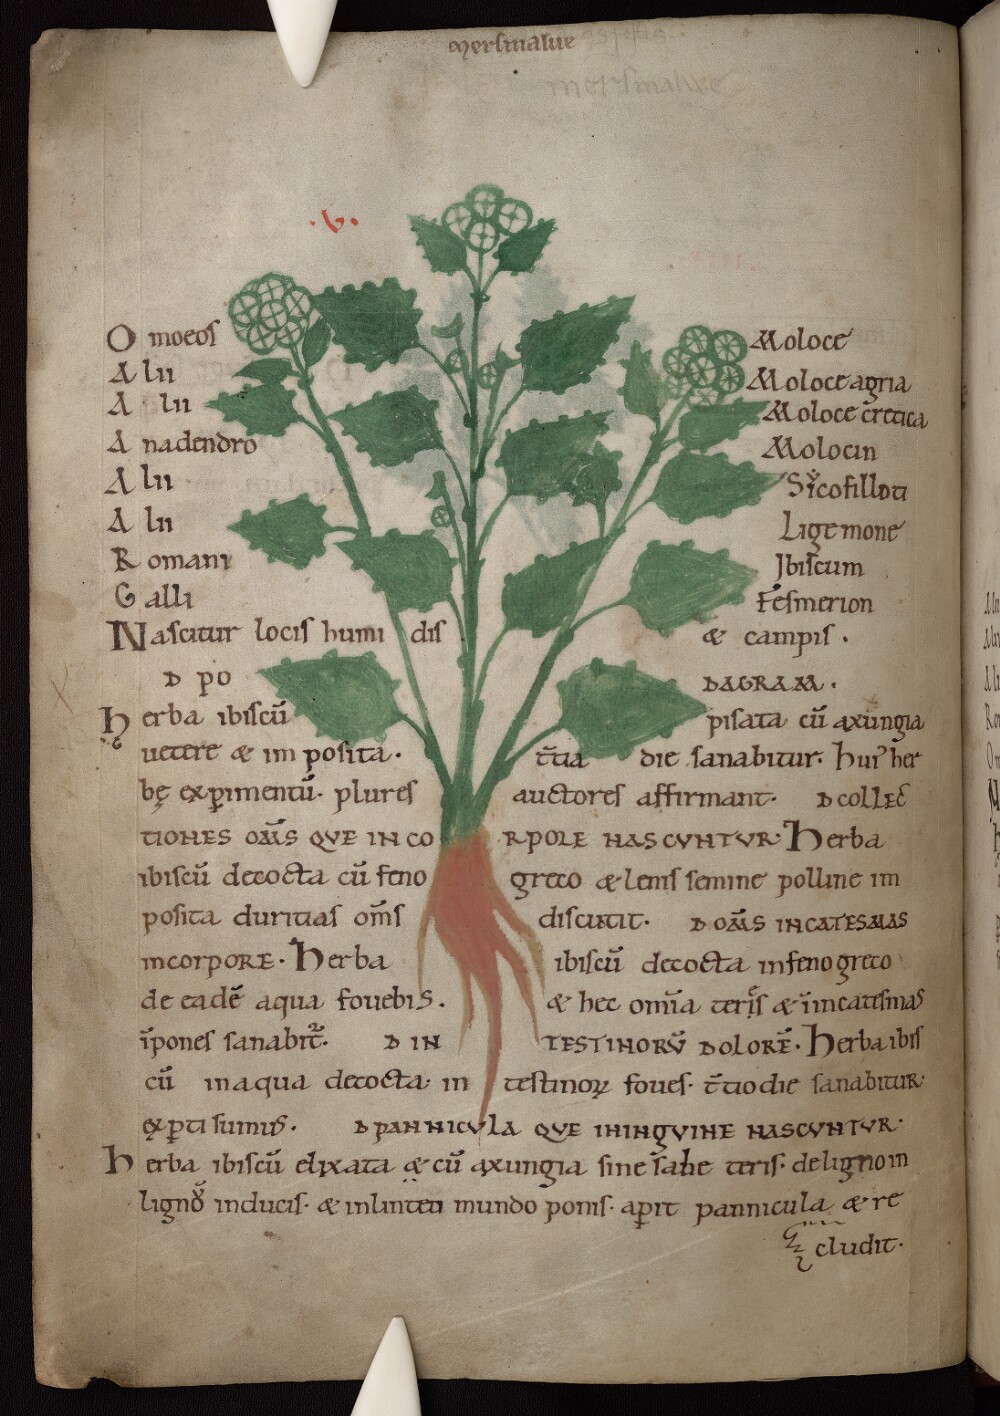 mersmalue
mersmalwe
.v.
Omoeos Moloce
Alii Moloce agria
Alii Moloce cretica
Anadendro Molocin
Alii Sicofilloti
Alii Ligemone
Romani Ibiscum
Galli Fesmerion
Nascitur locis humi dis & campis.
D PO DAGRAM.
herba ibiscū pisata cū axungia
uetere & im posita. t̄tia die sanabitur. hui' her
bę exp̄imentū. plures auctores affirmant. D COLLEC
TIONES OM̄S QVE IN CO RPORE NASCVNTVR. herba
ibiscū decocta cū feno greco & lenis semine polline im
posita duritias om̄s discutit. D OM̄S INCATESMAS
INCORPORE. herba ibiscū decocta infenogreco
de eadē aqua fouebis. & hec om̄ia teris & īncatesmas
īpones sanabit̄. D IN TESTINORV̄ DOLORĒ. herba ibis
cū in aqua decocta. in testinoꝝ foues. t̄tio die sanabitur.
exp̄ti sumus. D PANNICVLA QVE ININGVINE NASCVNTVR.
herba ibiscū elixata & cū axungia sine sale teris. de ligno in
ligno inducis. & inlinteū mundo ponis. apit pannicula & re
cludit.